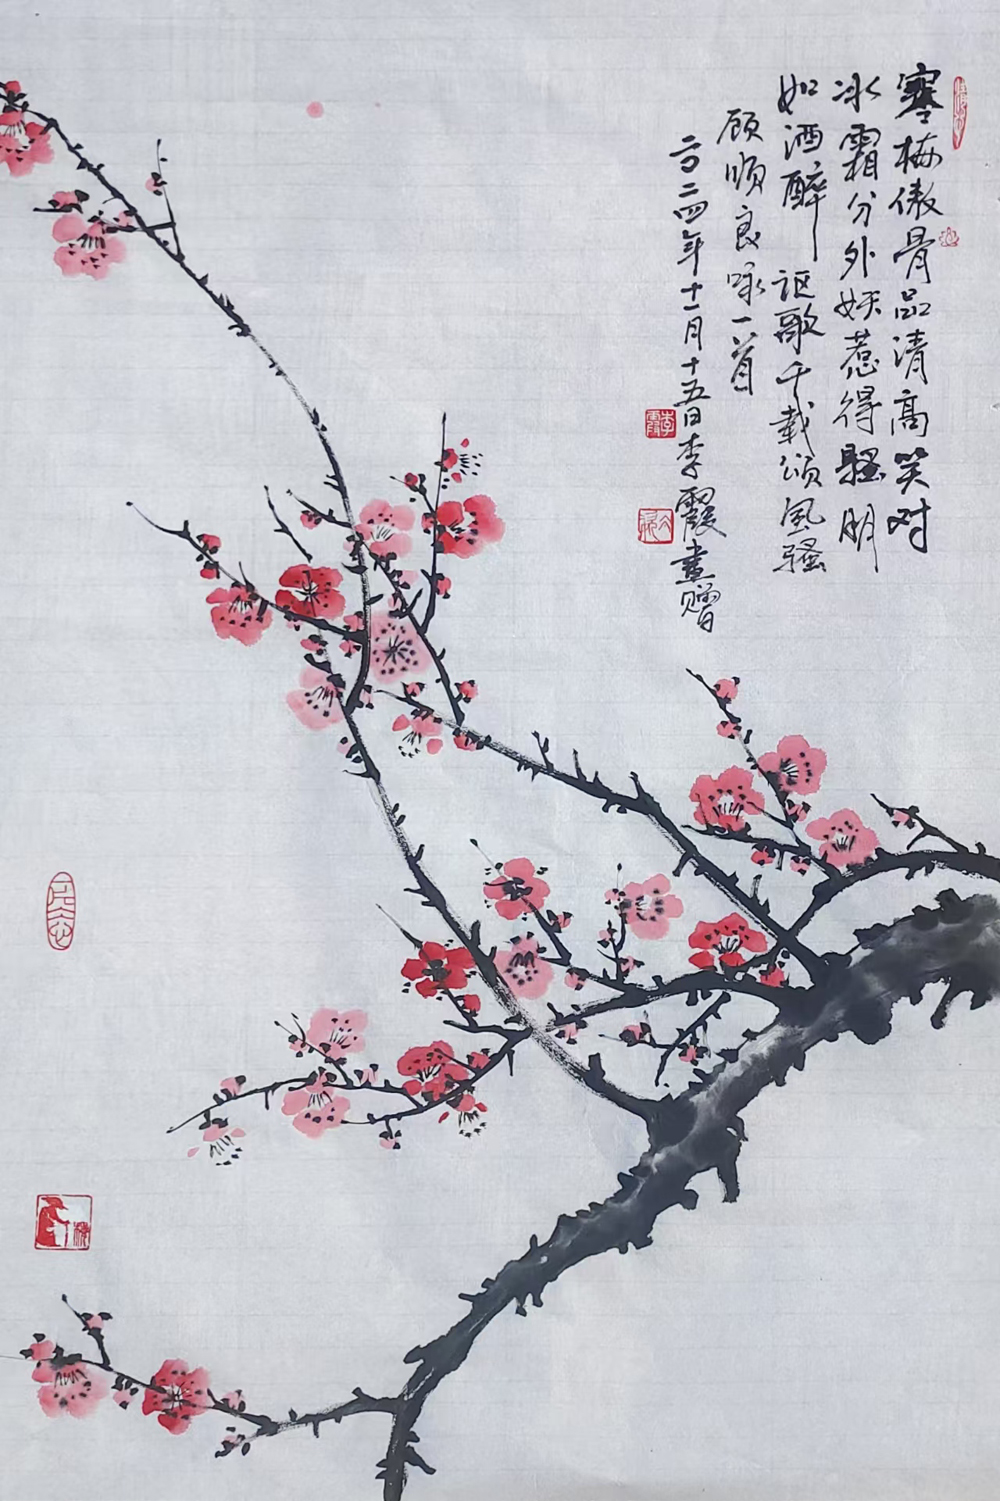 寒梅傲骨品清高笑对
冰霜分外妖惹得骚朋
如酒醉讴歌千载颂风骚
顾顺良咏一首
二〇二四年十一月十五日李霞画赠
李霞